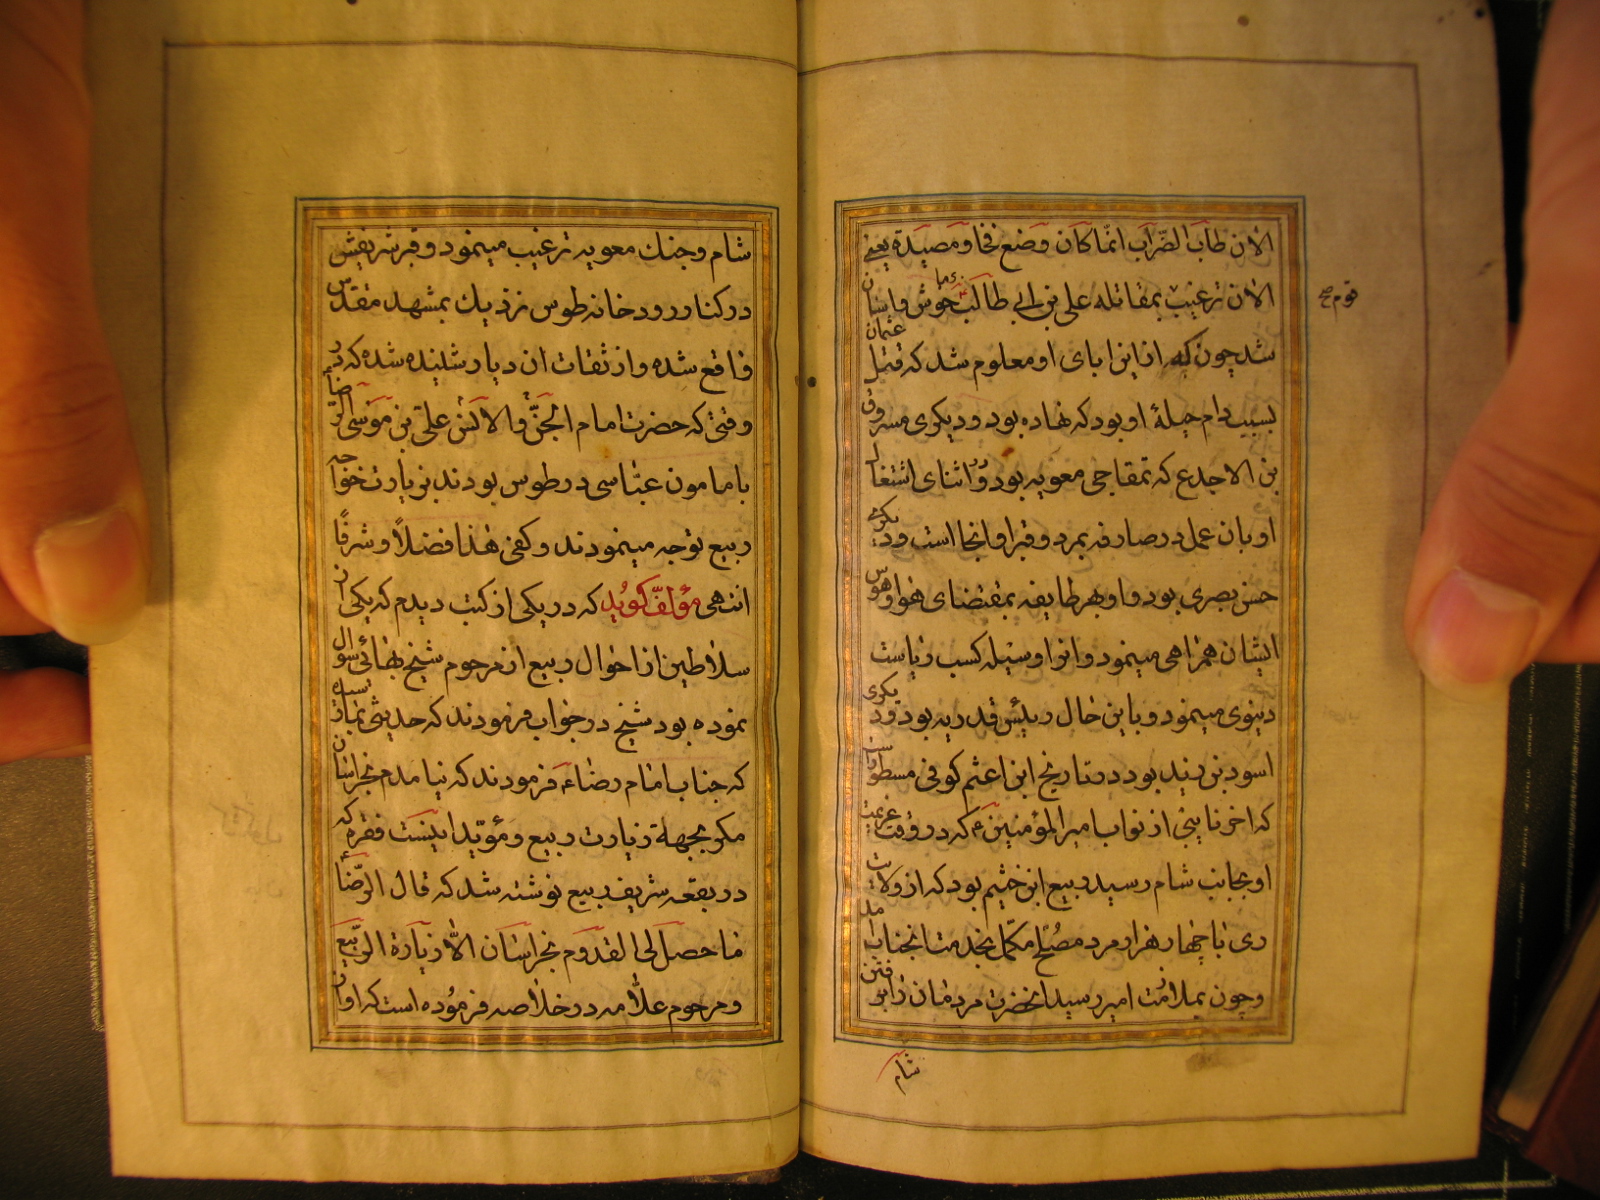 الان طاب الضراب انما کان وضع فخا و مصیدة یعنی
الان ترغیب بمقاتله علی بن ابی طالب ع خوش وما ایشان
قوم صح
شد چون که ازین ابای او معلوم شد که قتل عثمان
بسبب دام حیلهٔ او بود که نهاده بود و دیکری مسروق
بن الاجدع که تمغاجی معویه بود و در اثنای اشتغال
او بان عمل در صافه بمرد و قبر او انجا است و دیکری
حسن بصری بود و او بهر طایفه بمقتضای هوا و هوس
ایشان همراهی مینمود و انرا وسیله کسب ریاست
دینوی مینمود و با این حال رییس قدریه بود و دیکری
اسود بن یزید بود در تاریخ ابن اعثم کوفی مسطور است
که اخر نایبی از نواب امیر المؤمنین ع که در وقت عزیمت
او بجانب شام رسید ربیع ابن خثیم بود که از ولایت
ری با چهار هزار مرد مصلح مکمل بخدمت انجناب امد
و چون بملازمت امیر رسید انحضرت مردمان را بر فتن
شام
شام و جنك معویه ترغیب مینمود و قبر شریفش
در کنار رودخانه طوس نزدیك بمشهد مقدس
واقع شده و از ثقات ان دیار شنیده شده که در
وقتی که حضرت امام الجن و الانس علی بن موسی الرضا
با مامون عباسی در طوس بودند بزیارت خواجه
ربیع توجه مینمودند و کفی هذا فضلاً و شرفًا
انتهی مؤلف کوید که در یکی از کتب دیدم که یکی از
سلاطین از احوال ربیع از مرحوم شیخ بهائی سوال
نموده بود شیخ در جواب فرمودند که حدیثی بما رسیده
که جناب امام رضاء فرمودند که نیامدم بخراسان
مکر بجهة زیارت ربیع و مؤید اینست فقره که
در بقعه شریف ربیع نوشته شد که قال الرضا
ما حصل لی القدوم بخراسان الا زیارة الربیع
و مرحوم علامه در خلاصه فرموده است که او از